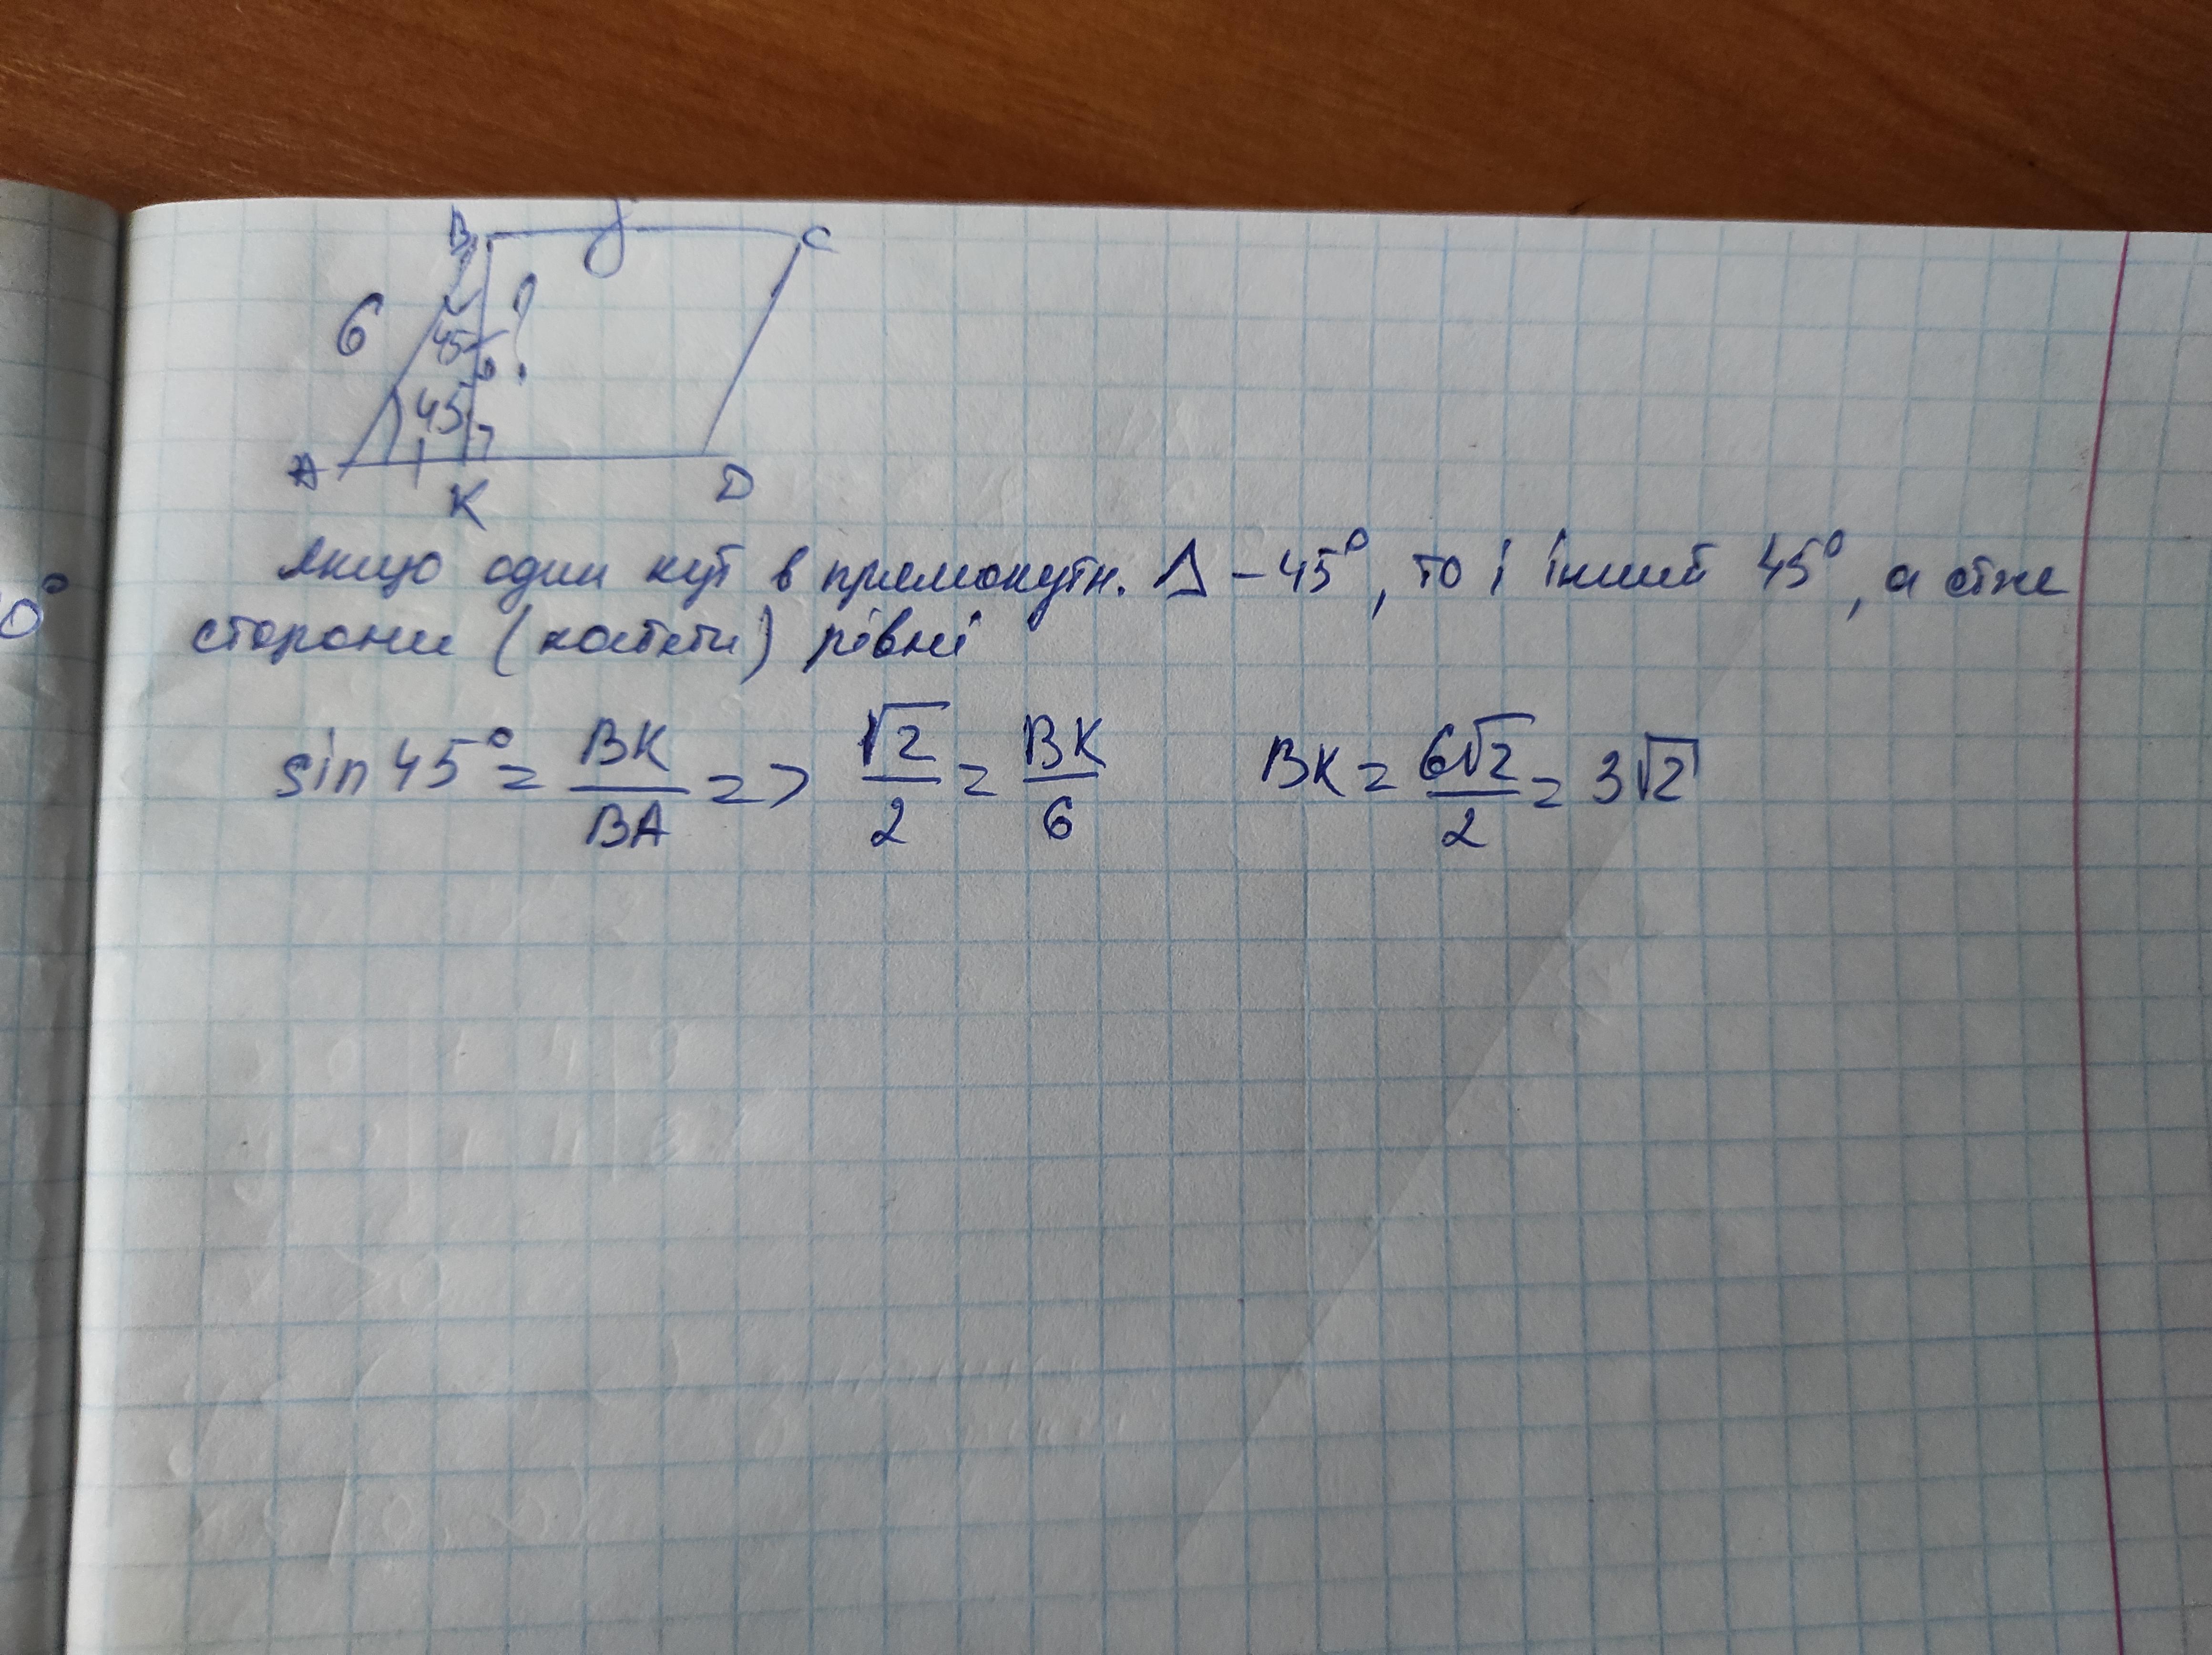 B C
6 45 ?
45
A K D
0°
Якщо один кут в прямокутн. Δ – 45°, то і інший 45°, а отже
сторони (катети) рівні
sin 45° = BK/BA => √2/2 = BK/6 BK = 6√2/2 = 3√2